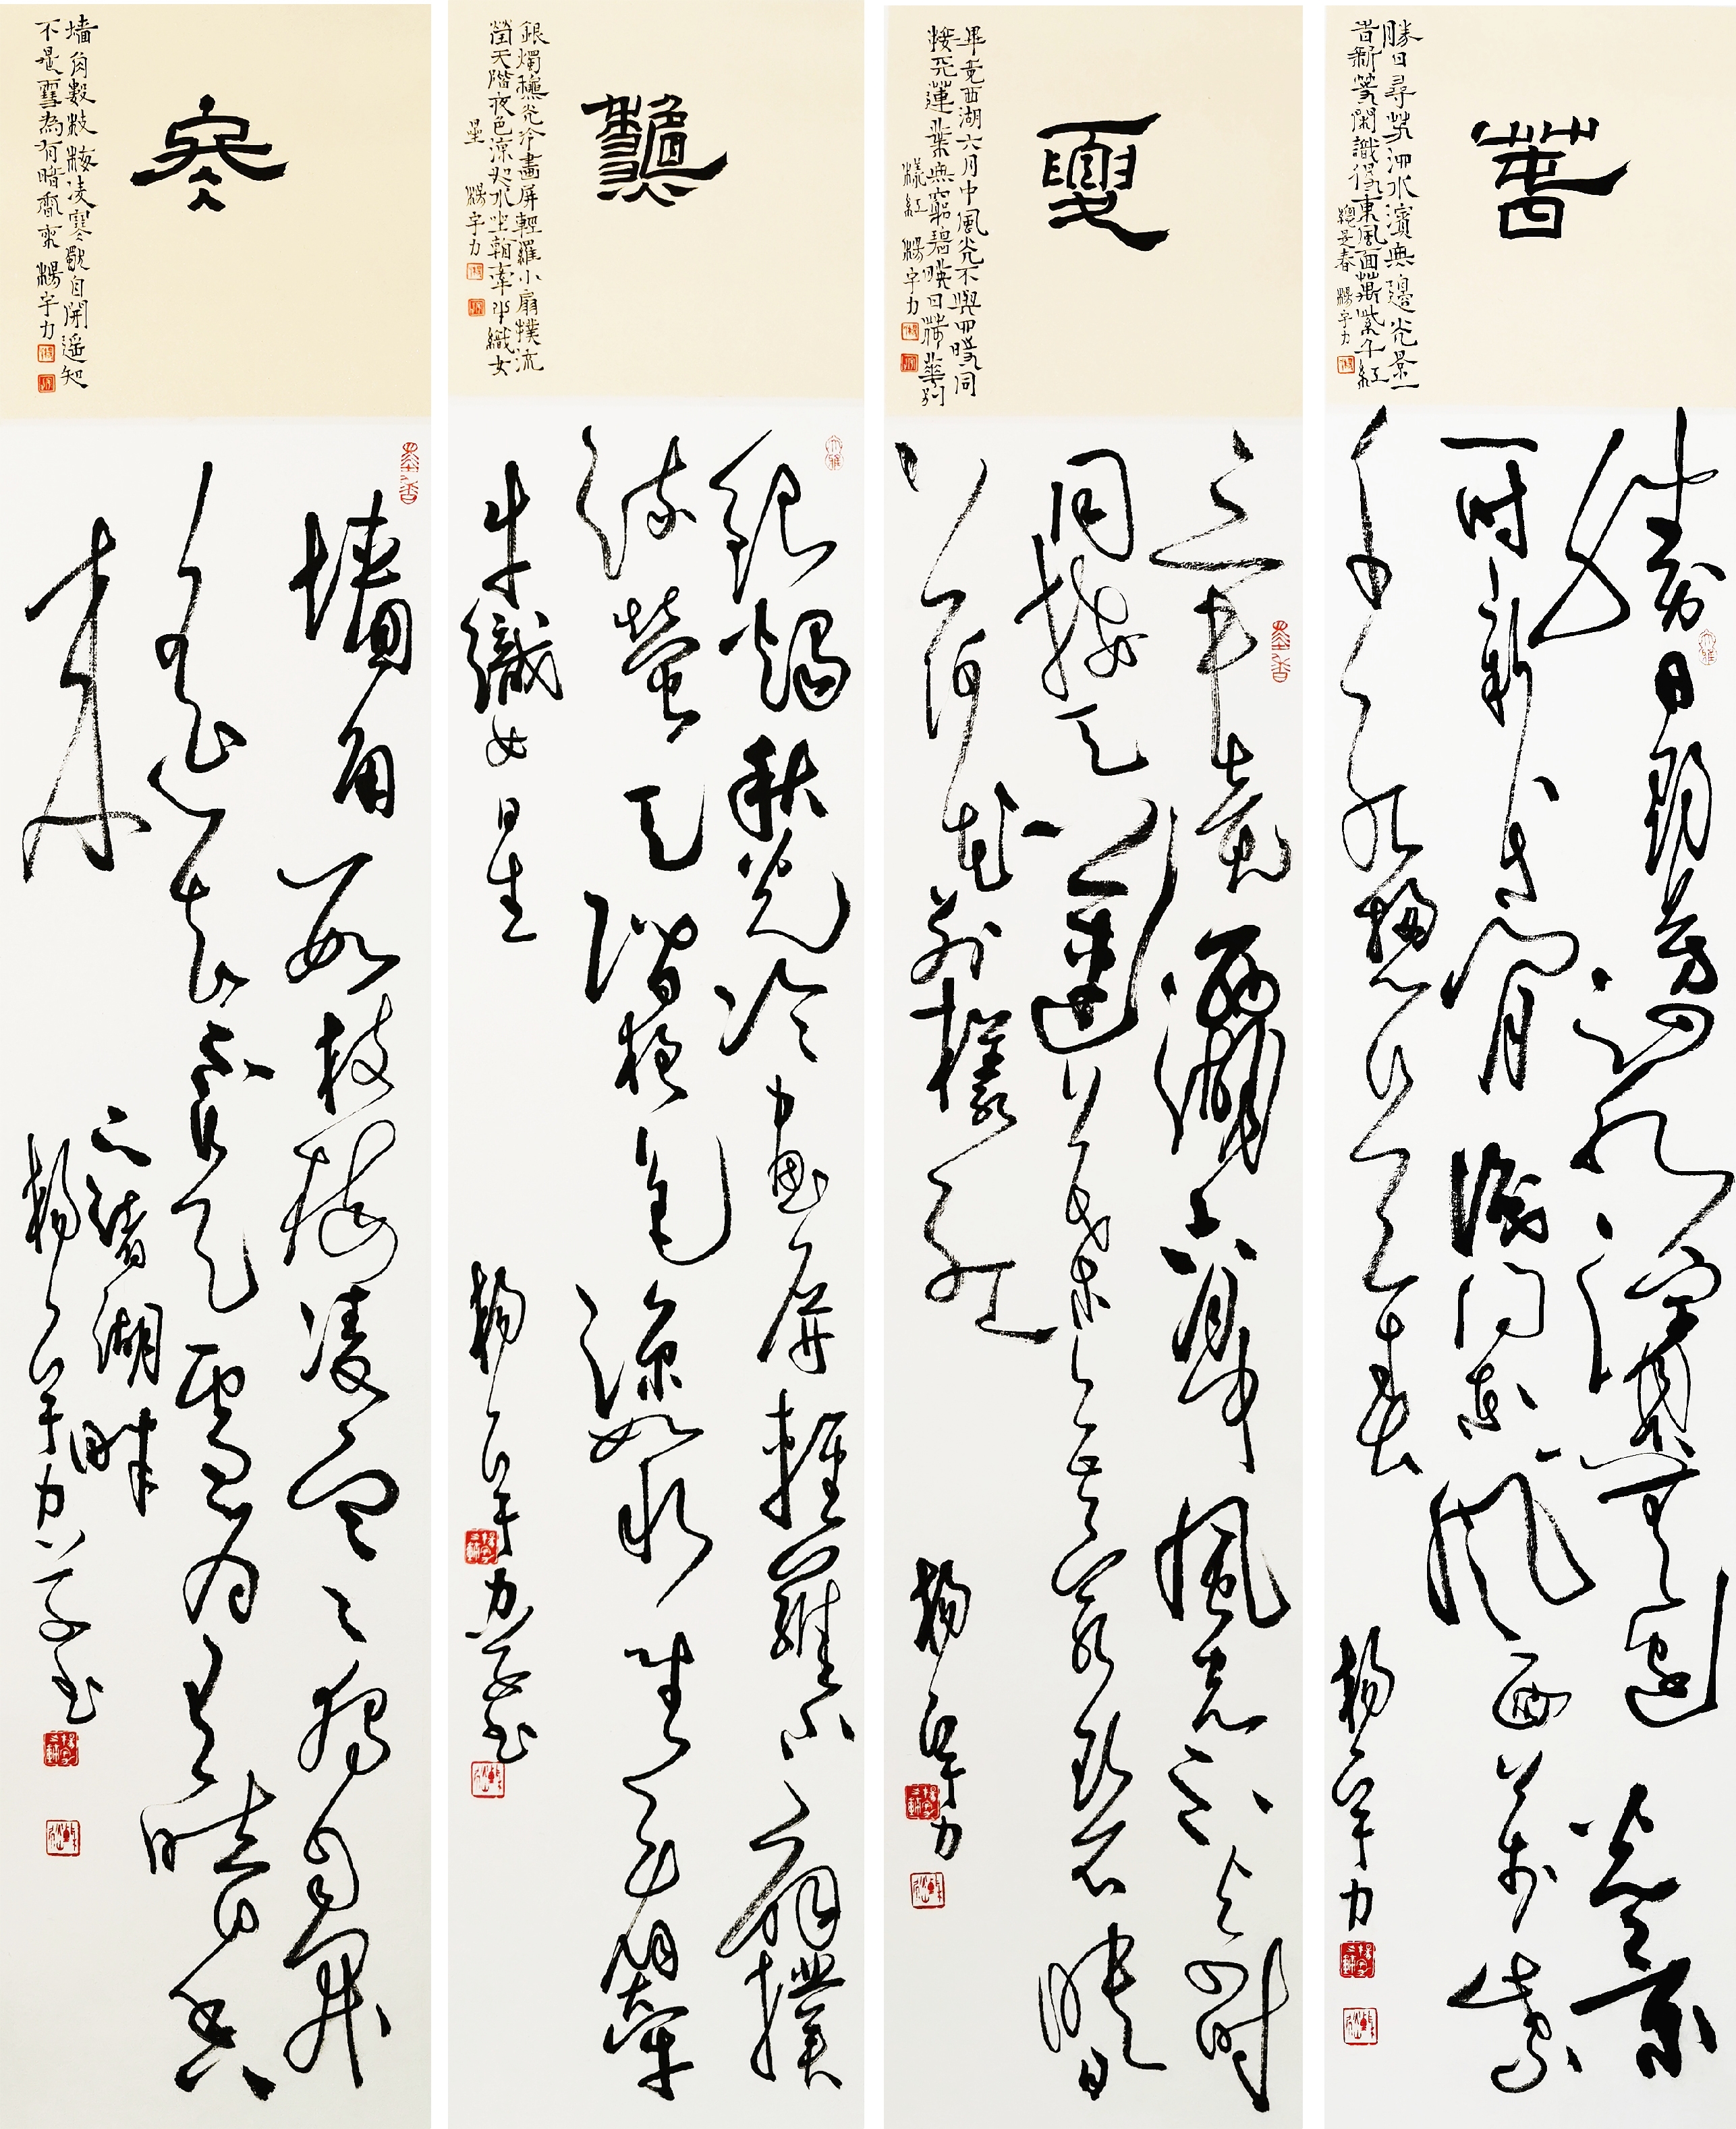 萅
勝日尋芳泗水濱無邊光景一
旹新等閑識得東風面萬紫千紅
總是春 楊宇力
勝日尋芳泗水濱無邊光景
一時新等閑識得東風面萬紫
千紅總是春
楊宇力
夏
畢竟西湖六月中風光不與四旹同
接天蓮葉無窮碧映日荷華別
樣紅 楊宇力
墨香
畢竟西湖六月中風光不與四時
同接天蓮葉無窮碧映日
荷花別樣紅
楊宇力
龝
銀燭龝光冷畫屏輕羅小扇撲流
螢天階夜色涼如水坐看牽牛織女
星 楊宇力
銀燭秋光冷畫屏輕羅小扇撲
流螢天階夜色涼如水坐看牽
牛織女星
楊宇力
冬
墻角數枝梅凌寒獨自開遙知
不是雪為有暗香來 楊宇力
墨香
墻角數枝梅凌寒獨自開
遙知不是雪為有暗香
來
湖畔
楊宇力